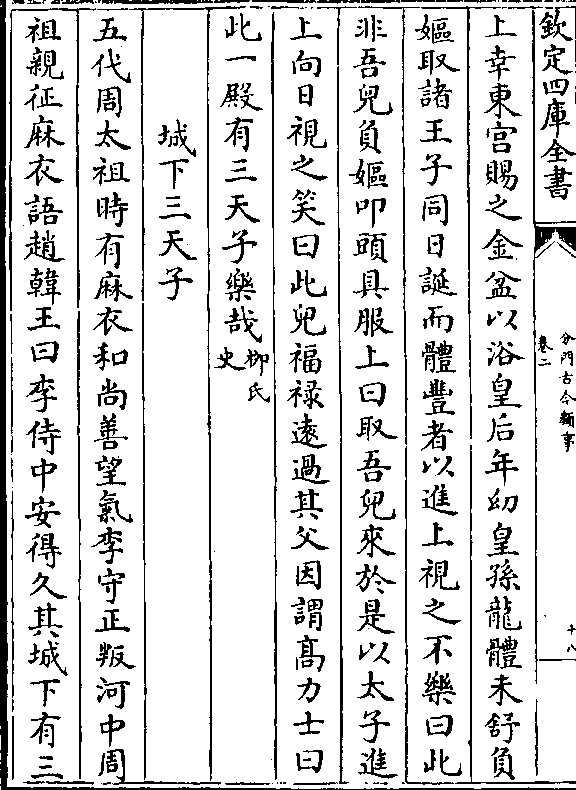 欽定四庫全書
卷二
分門古今類事
十八
上幸東宫賜之金盆以浴皇后年幼皇孫龍體未舒負
嫗取諸王子同日誕而體豐者以進上視之不樂曰此
非吾兒負嫗叩頭具服上曰取吾兒來於是以太子進
上向日視之笑曰此兒福禄逺過其父因謂髙力士曰
此一殿有三天子樂哉柳氏史
城下三天子
五代周太祖時有麻衣和尚善望氣李守正叛河中周
祖親征麻衣語趙韓王曰李侍中安得久其城下有三